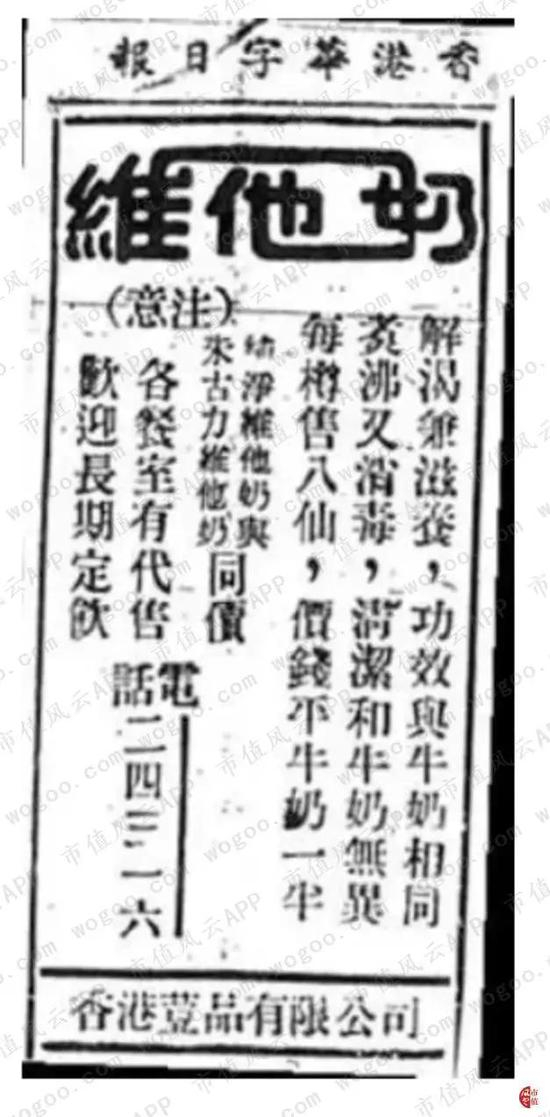 香港華字日報
維他奶
(注意)
解渴兼滋養，功效與牛奶相同
煮沸又消毒，清潔和牛奶無異
每樽售八仙，價錢平牛奶一半
淨維他奶與
朱古力維他奶
同價
各餐室有代售
歡迎長期定飲
電話二四三一六
香港荳品有限公司
市值风云APP
wogoo.com
市值
风云